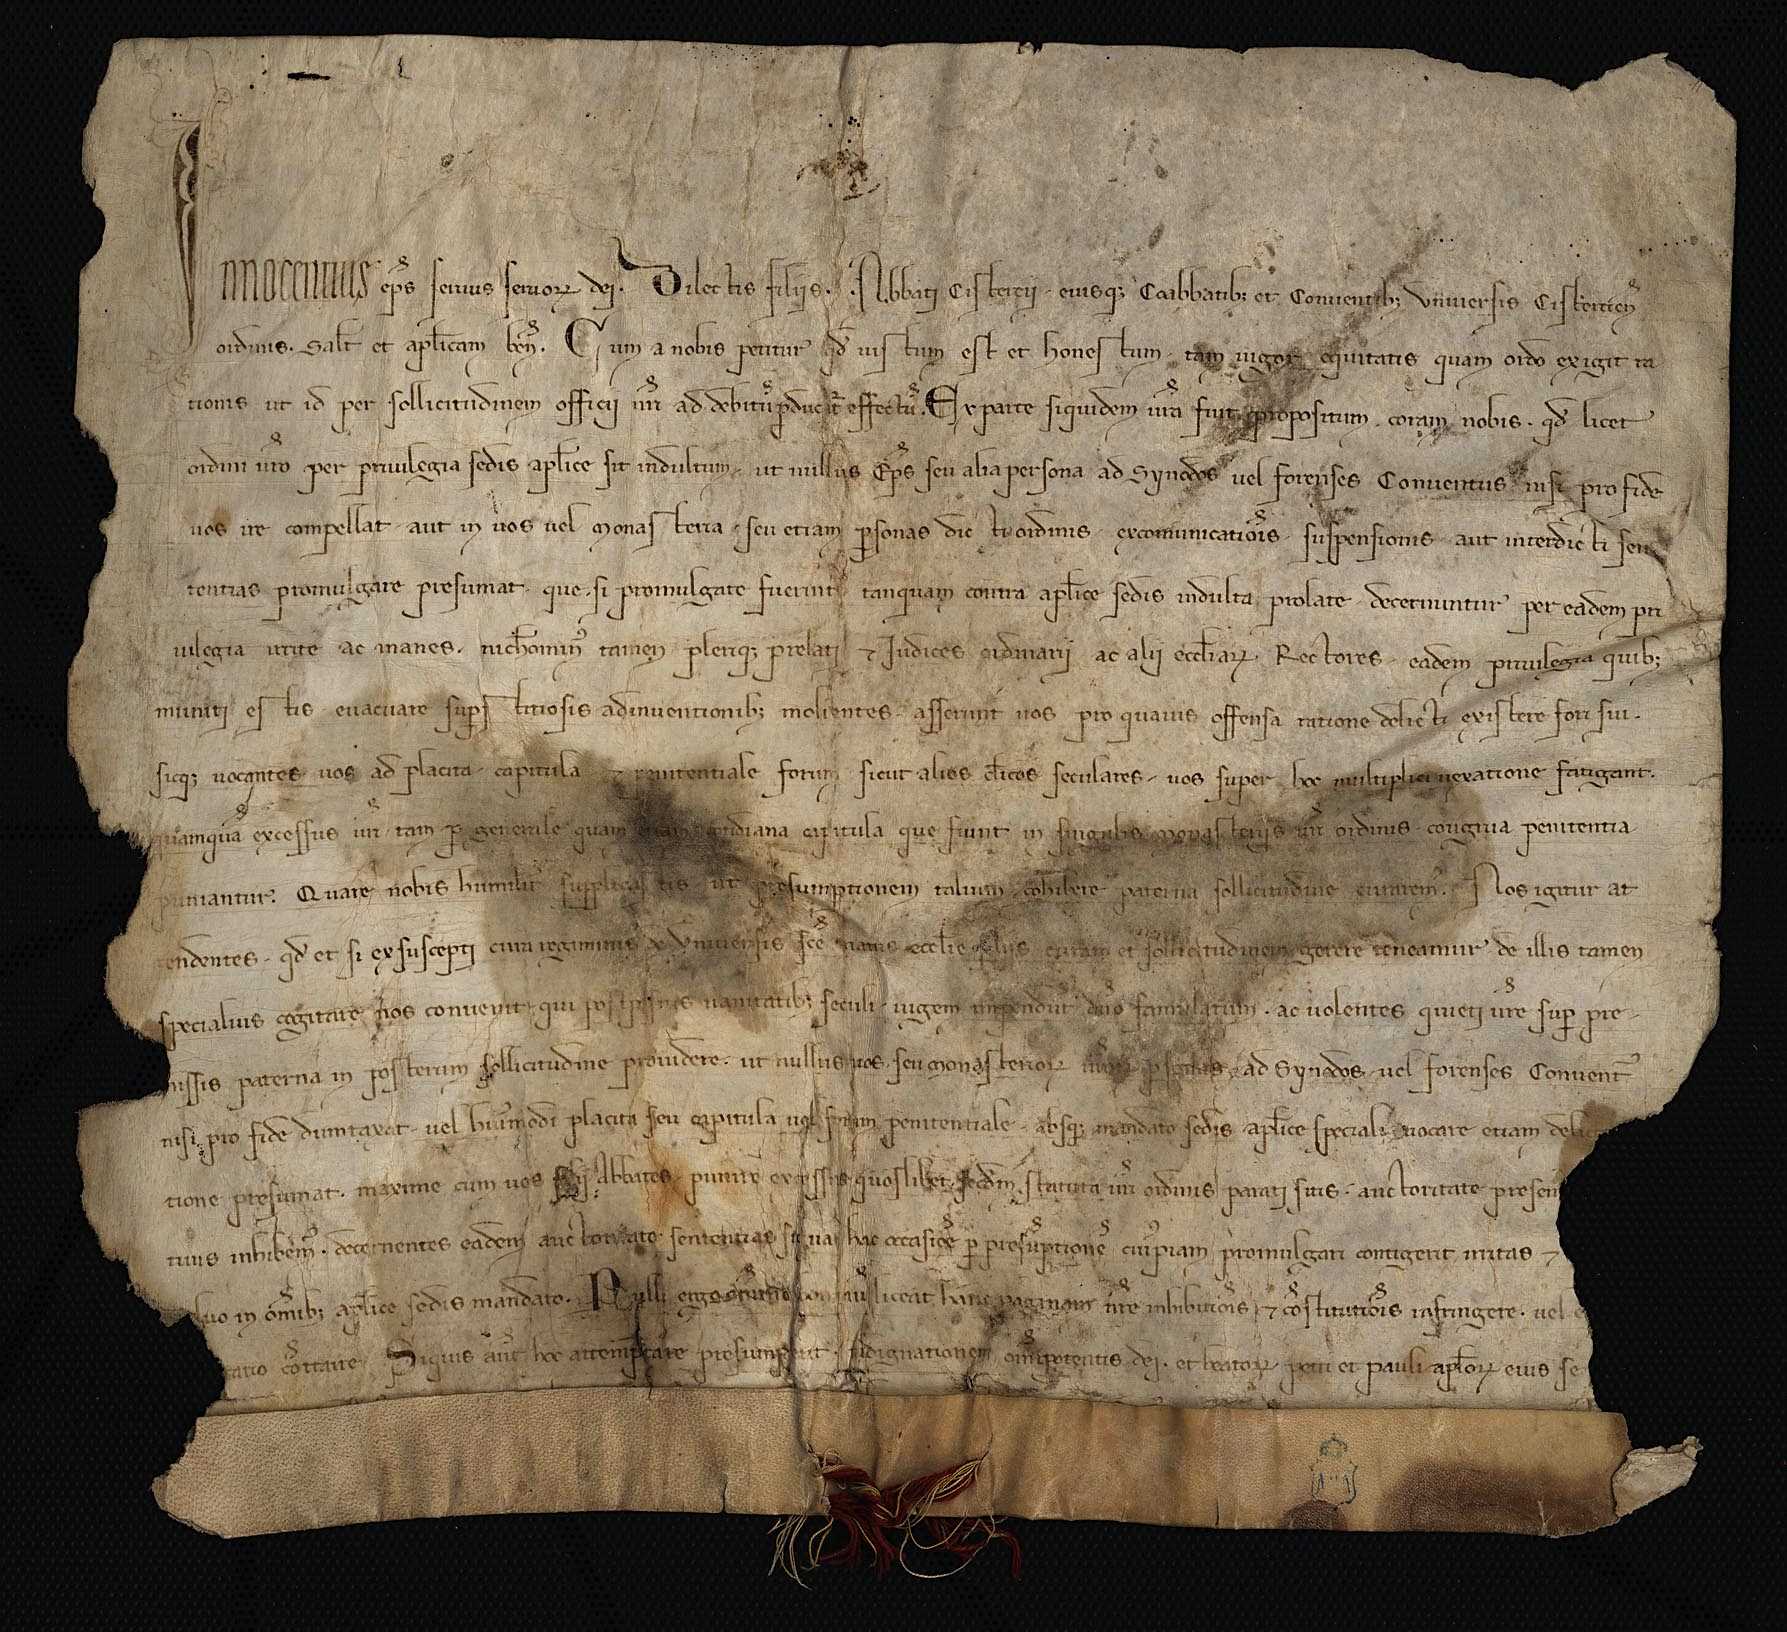 Innocentius ep̃s seruus seruoꝝ dei. Dilectis filijs. Abbati Cistercij eiusq; Coabbatib; et Conuentib; Vniuersis Cistercieñ
ordinis. Salt̃ et apl̃icam beñ. Cum a nobis petitur qd̃ iustum est et honestum. tam uigor equitatis quam ordo exigit ra
tionis ut id per sollicitudinem officij nr̃i ad debitũ ꝑducat̃ effectũ. Ex parte siquidem ur̃a fuit propositum coram nobis. qd̃ licet
ordini ur̃o per priuilegia sedis apl̃ice sit indultum. ut nullus Ep̃s seu alia persona ad Synodos uel forenses Conuentus nisi pro fide
uos ire compellat. aut in uos uel Monasteria. seu etiam ꝑsonas dicti ordinis. excommunicatiõis. suspensionis aut interdicti sen
tentias promulgare presumat. que si promulgate fuerint tanquam contra apl̃ice sedis indulta prolate. decernuntur per eadem pri
uilegia irrite ac inanes. nichõmin̾ tamen pleriq; prelati ⁊ Iudices ordinarij ac alij eccl̃iaꝝ Rectores. eadem priuilegia quib;
muniti estis euacuare suꝑstitiosis adinuentionib; molientes. asserunt uos pro quauis offensa ratione delicti existere fori sui.
sicq; uocantes uos ad placita. capitula ⁊ penitentiale forum sicut alios cl̃icos seculares. uos super hoc multiplici uexatione fatigant.
quamquã excessus ur̃i tam ꝑ generale quam etiam cotidiana capitula que fiunt in singulis Monasterijs ur̃i ordinis. congrua penitentia
puniantur. Quare nobis humilit̃ supplicastis. ut presumptionem talium cohibere paterna sollicitudine curarem̾. Nos igitur at
tendentes. qd̃ et si ex suscepti cura regiminis de Vniuersis sc̃e matris eccl̃ie filijs curam et sollicitudinem gerere teneamur de illis tamen
specialius cogitare nos conuenit qui postpositis uanitatib; seculi iugem impendũt dño famulatum. ac uolentes quieti ur̃e suꝑ pre
missis paterna in posterum sollicitudine prouidere. ut nullus uos. seu Monasterioꝝ ur̃oꝝ ꝑsonas ad Synodos uel forenses Conuent̾
nisi pro fide dumtaxat. uel hui̾modi placita seu capitula uel forum penitentiale. absq; mandato sedis apl̃ice speciali uocare etiam
tione presumat. maxime cum uos filij Abbates. punire excessus quoslibet. sc̃dm statuta ur̃i ordinis parati sitis. auctoritate presen
tium inhibem̾. decernentes eadem auctoritate sententias siquas hac occasiõe ꝑ presũptionẽ cui̾piam promulgari contigerit irritas ⁊
in om̃ib; apl̃ice sedis mandato. Nulli ergo om̃ino hominũ liceat hanc paginam nr̃e inhibitiõis ⁊ cõstitutiõis infringere. uel
cõtraire. Siquis aut̃ hoc attemptare presumpserit. indignationem om̃ipotentis dei. et beatoꝝ petri et pauli apl̃oꝝ eius se